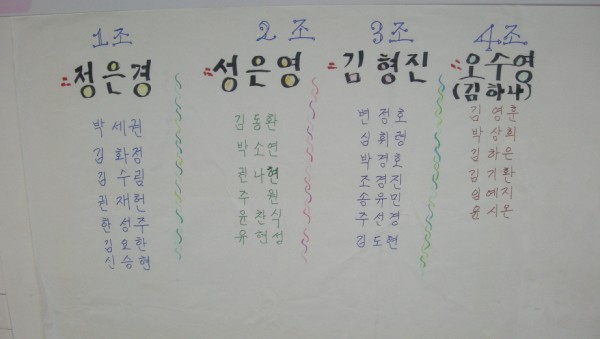 1조
정은경
박세권
김화정
김수림
권재헌
한성주
김요한
신승현
2조
성은영
김동환
박소연
권나현
주원
윤찬식
유현성
3조
김형진
변정호
심휘령
박경호
조경진
송유민
주선경
김도현
4조
오수영
(김하나)
김영훈
박상희
김하은
김기환
임예지
윤시온